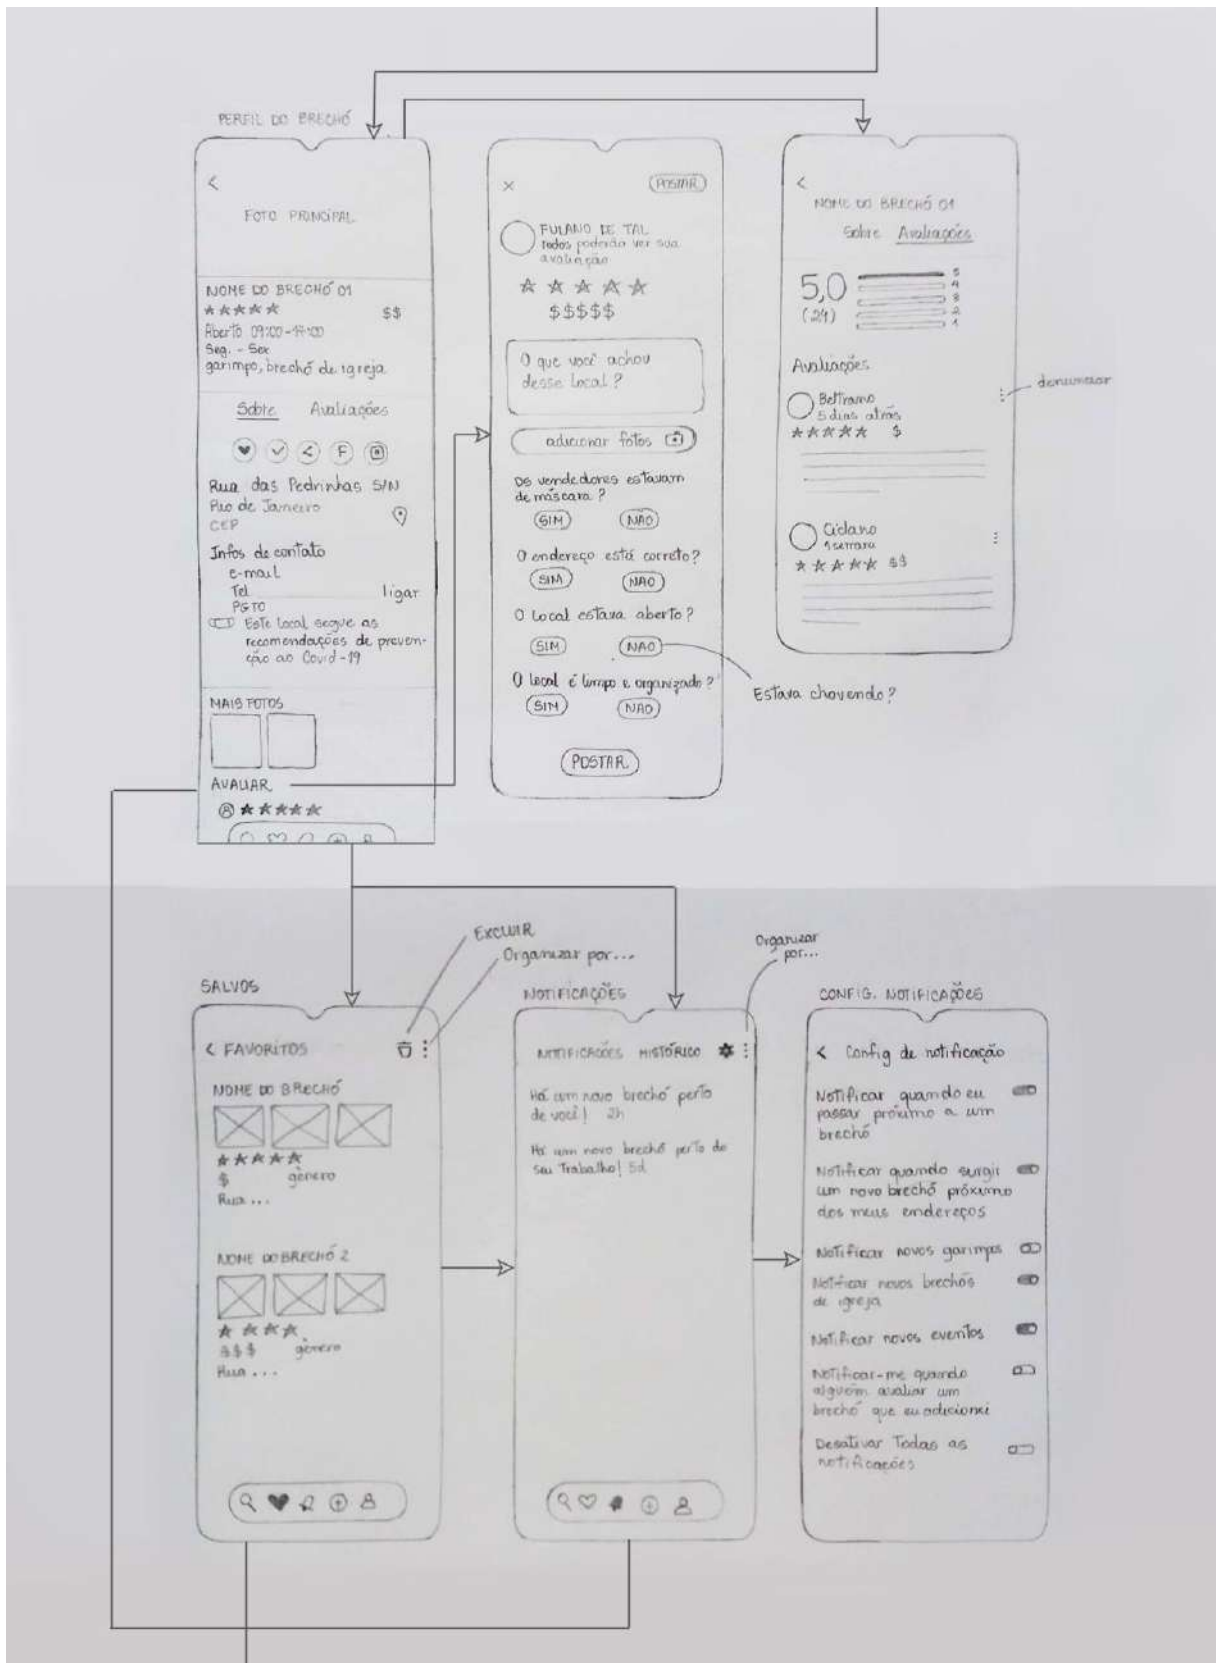 PERFIL DO BRECHÓ
<
FOTO PRINCIPAL
NOME DO BRECHÓ 01
$$
Aberto 09:00-17:00
Seg. - Sex
garimpo, brechó de igreja
Sobre Avaliações
F
Rua das Pedrinhas S/N
Rio de Janeiro
CEP
Infos de contato
e-mail
Tel ligar
PGTO
Este local segue as
recomendações de preven-
ção ao Covid-19
MAIS FOTOS
AVALIAR
× POSTAR
FULANO DE TAL
todos poderão ver sua
avaliação
$$$$$
O que você achou
desse local?
adicionar fotos
Os vendedores estavam
de máscara?
SIM NÃO
O endereço está correto?
SIM NÃO
O local estava aberto?
SIM NÃO
Estava chovendo?
O local é limpo e organizado?
SIM NÃO
POSTAR
<
NOME DO BRECHÓ 01
Sobre Avaliações
5,0
(24)
5
4
3
2
1
Avaliações
denunciar
Beltrano
5 dias atrás
$
Ciclano
1 semana
$$
EXCLUIR
Organizar por...
SALVOS
< FAVORITOS
NOME DO BRECHÓ
$ gênero
Rua ...
NOME DO BRECHÓ 2
$$$ gênero
Rua ...
Organizar
por...
NOTIFICAÇÕES
NOTIFICAÇÕES HISTÓRICO
Há um novo brechó perto
de você! 2h
Há um novo brechó perto do
seu Trabalho! 5d
CONFIG. NOTIFICAÇÕES
< Config de notificação
Notificar quando eu
passar próximo a um
brechó
Notificar quando surgir
um novo brechó próximo
dos meus endereços
Notificar novos garimpos
Notificar novos brechós
de igreja
Notificar novos eventos
Notificar-me quando
alguém avaliar um
brechó que eu adicionei
Desativar Todas as
notificações